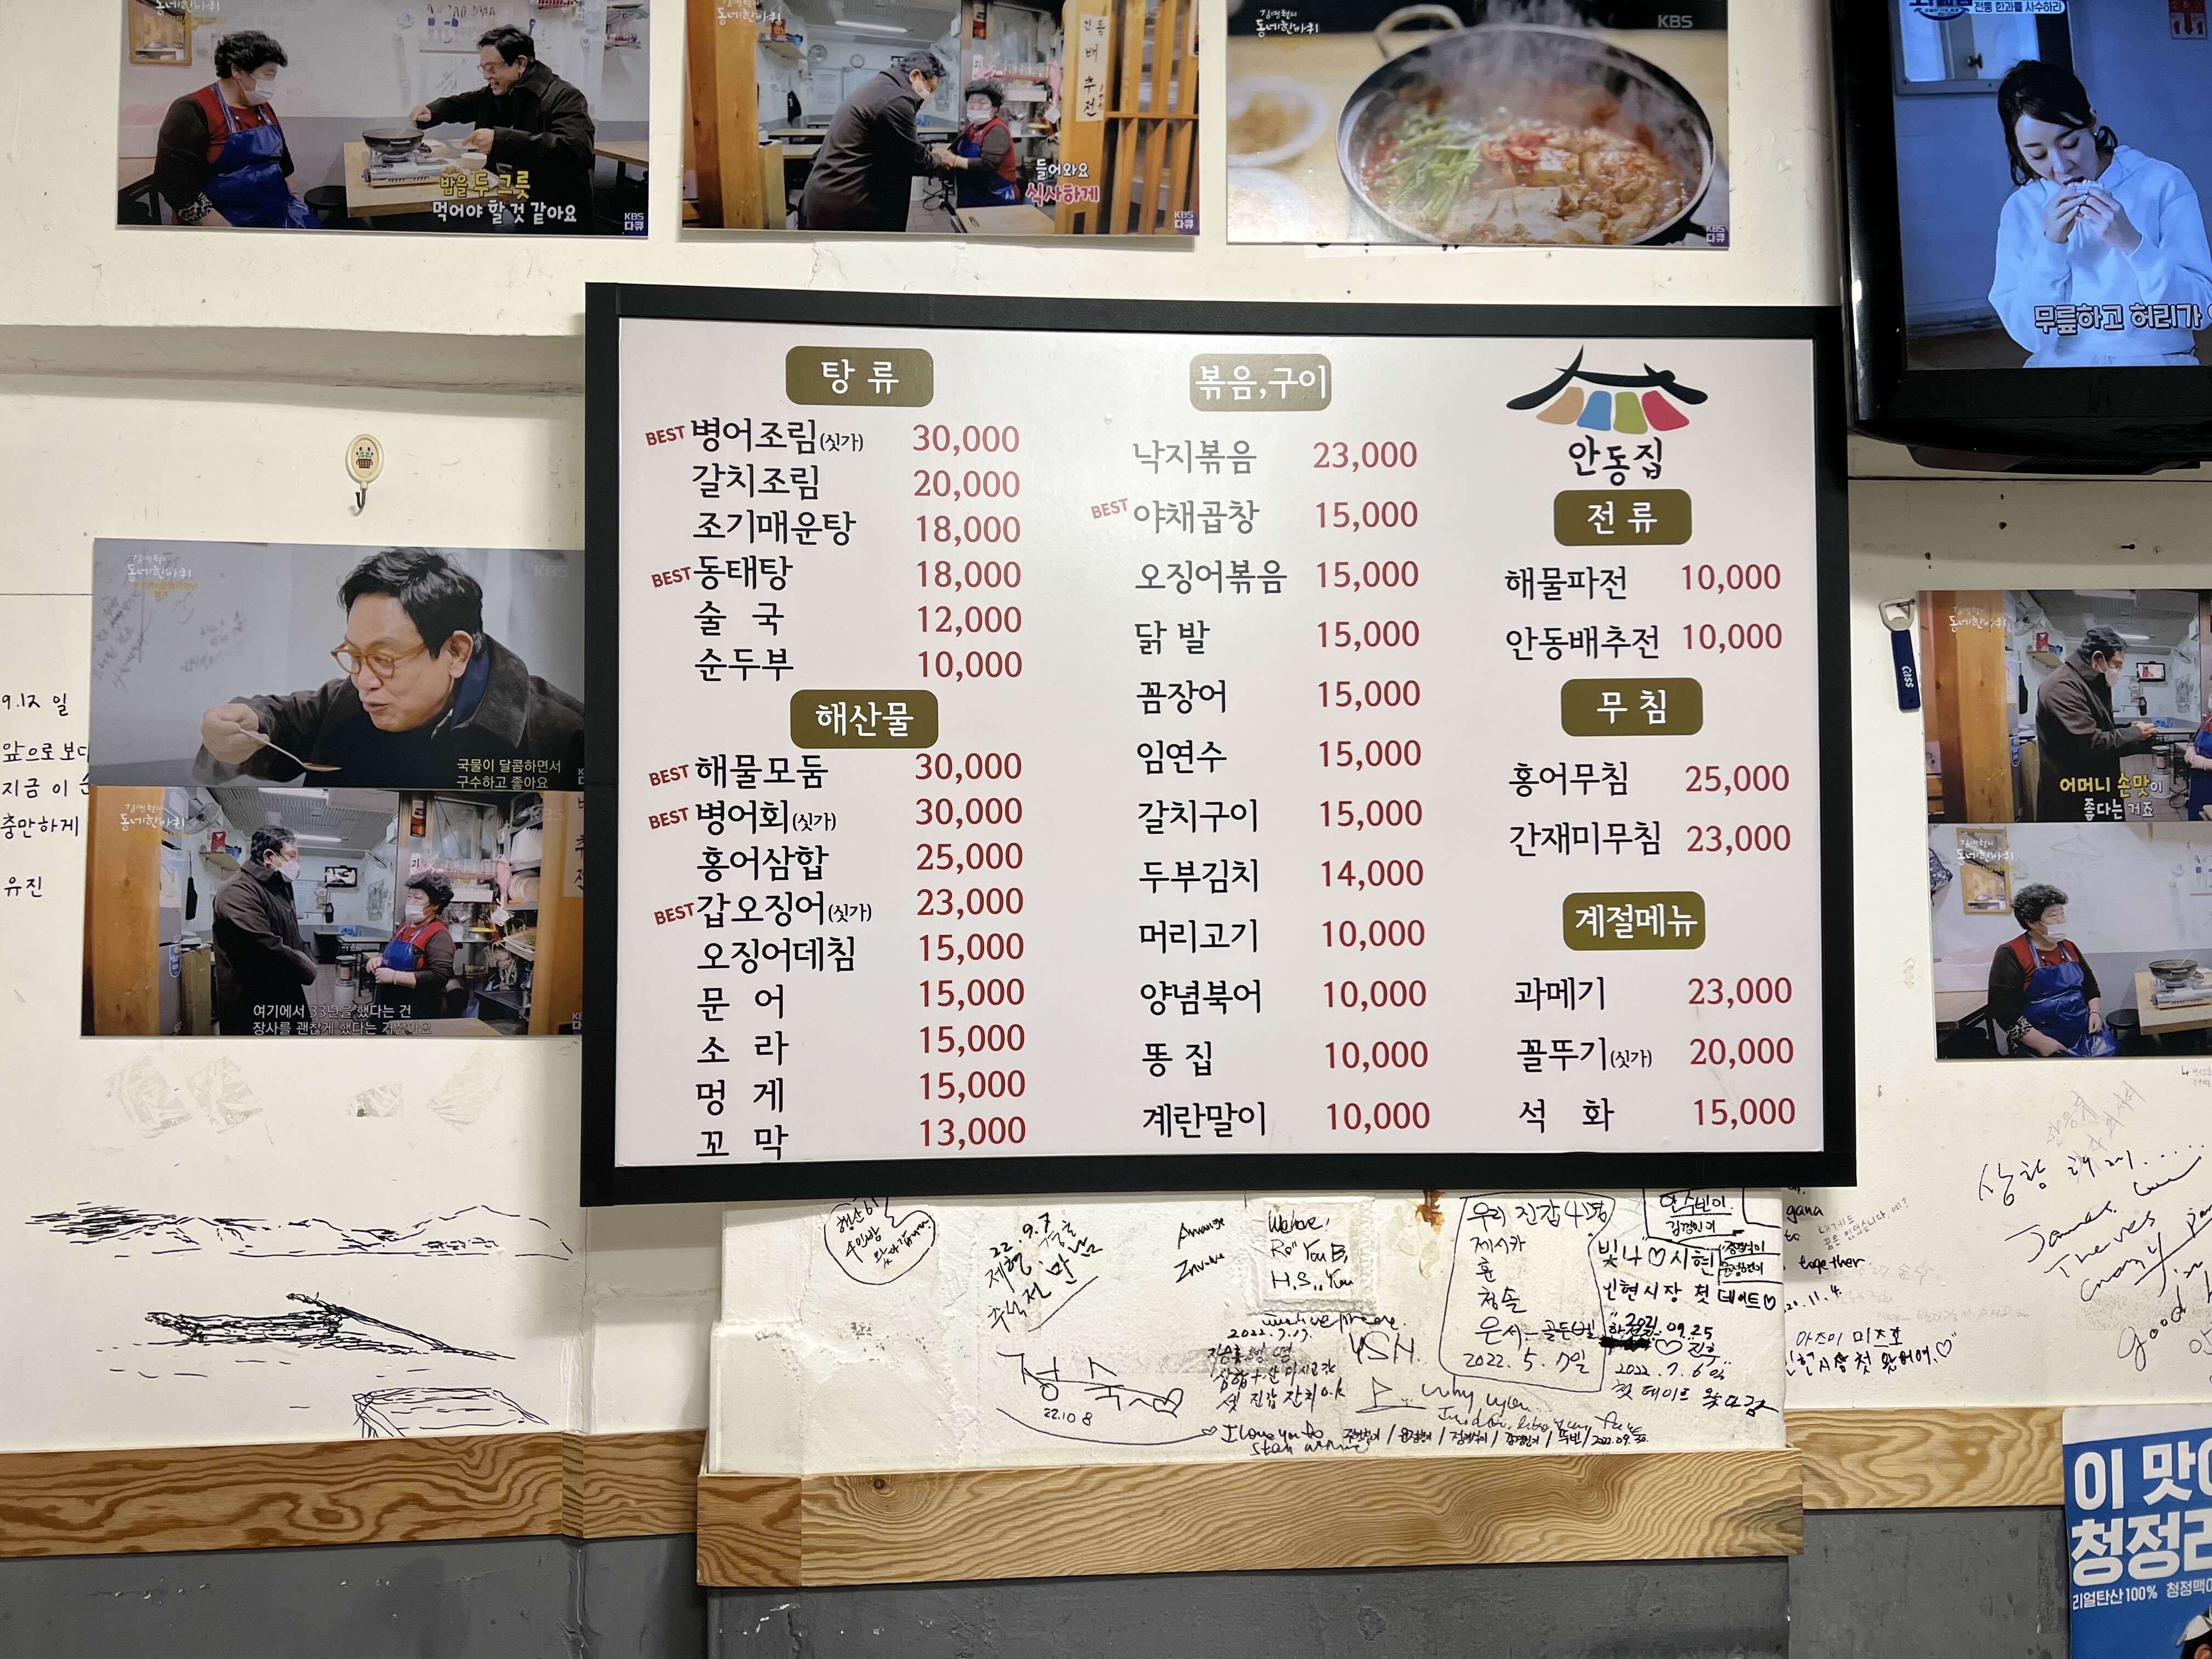 동네한바퀴
밥을 두 그릇
먹어야 할 것 같아요
KBS
다큐
동네한바퀴
배추전
들어와요
식사하게
KBS
다큐
김영철의
동네한바퀴
KBS
KBS
다큐
전통 한과를 사수하라
무릎하고 허리가
탕 류
BEST 병어조림(싯가) 30,000
갈치조림 20,000
조기매운탕 18,000
BEST 동태탕 18,000
술 국 12,000
순두부 10,000
해산물
BEST 해물모둠 30,000
BEST 병어회(싯가) 30,000
홍어삼합 25,000
BEST 갑오징어(싯가) 23,000
오징어데침 15,000
문 어 15,000
소 라 15,000
멍 게 15,000
꼬 막 13,000
볶음,구이
낙지볶음 23,000
BEST 야채곱창 15,000
오징어볶음 15,000
닭 발 15,000
꼼장어 15,000
임연수 15,000
갈치구이 15,000
두부김치 14,000
머리고기 10,000
양념북어 10,000
똥 집 10,000
계란말이 10,000
안동집
전 류
해물파전 10,000
안동배추전 10,000
무 침
홍어무침 25,000
간재미무침 23,000
계절메뉴
과메기 23,000
꼴뚜기(싯가) 20,000
석 화 15,000
김영철의
동네한바퀴
KBS
국물이 달콤하면서
구수하고 좋아요
김영철의
동네한바퀴
여기에서 33년을 했다는 건
장사를 괜찮게 했다는 거잖아요
9.12 일
앞으로 보다
지금 이
충만하게
유진
Cass
동네한바퀴
어머니 손맛이
좋다는 거죠
김영철의
동네한바퀴
22.9.7
22.10 8
You
2022.7.17.
YSH
우리 진갑 4명
제시카
훈
청솔
은서
2022.5.7일
빛나♡시현
인현시장 첫 데이트♡
2021.09.25
2022.7.6일
첫 데이트
I love you
2022.09.30.
together
20.11.4.
James
good
이 맛이
청정라
리얼탄산 100% 청정맥아